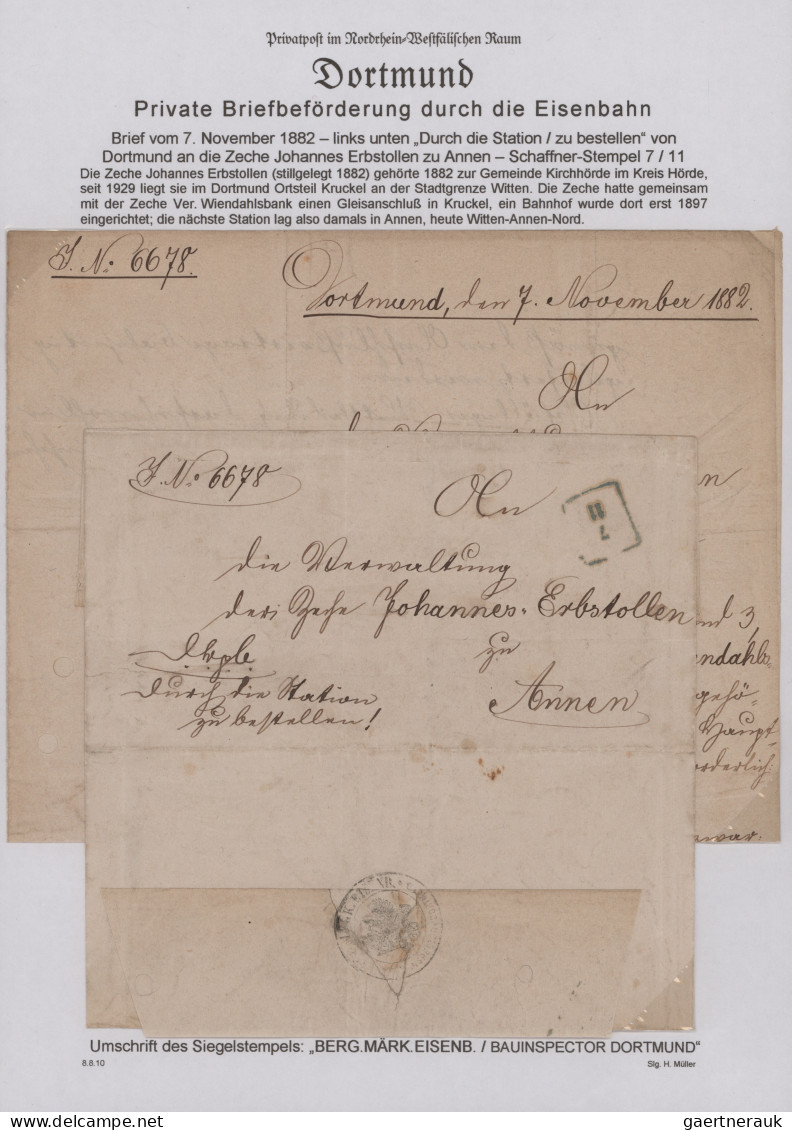 Privatpost im Nordrhein-Westfälischen Raum
Dortmund
Private Briefbeförderung durch die Eisenbahn
Brief vom 7. November 1882 – links unten „Durch die Station / zu bestellen“ von
Dortmund an die Zeche Johannes Erbstollen zu Annen – Schaffner-Stempel 7 / 11
Die Zeche Johannes Erbstollen (stillgelegt 1882) gehörte 1882 zur Gemeinde Kirchhörde im Kreis Hörde,
seit 1929 liegt sie im Dortmund Ortsteil Kruckel an der Stadtgrenze Witten. Die Zeche hatte gemeinsam
mit der Zeche Ver. Wiendahlsbank einen Gleisanschluß in Kruckel, ein Bahnhof wurde dort erst 1897
eingerichtet; die nächste Station lag also damals in Annen, heute Witten-Annen-Nord.
J. No 6678.
Dortmund, den 7. November 1882.
An
J. No 6678
An
7
11
die Verwaltung
der Zeche Johannes-Erbstollen
nd 3,
zu
ndahlb
Durch die Station
Annen
gehö-
zu bestellen!
Haupt-
orderlich
Umschrift des Siegelstempels: „BERG.MÄRK.EISENB. / BAUINSPECTOR DORTMUND“
8.8.10
Slg. H. Müller
www.delcampe.net
gaertnerauk